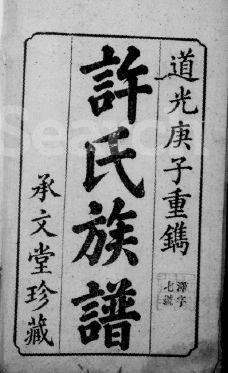 道光庚子重鐫
澤字
七號
許氏族譜
承文堂珍藏